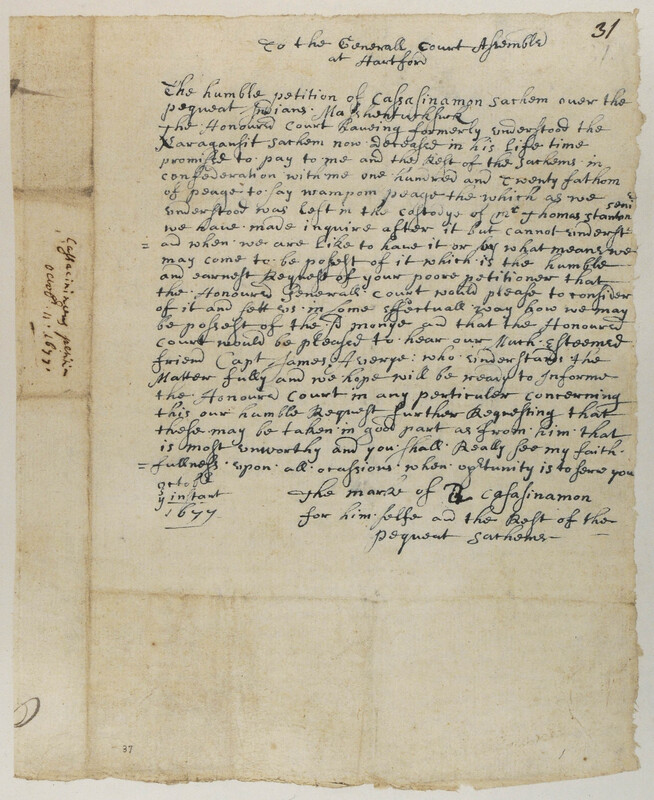 31
To the Generall Court Assemble
at Hartford
The humble petition of Cassasinamon Sachem over the
pequeat Indians. Mashentucksuck
The Honoured Court haveing formerly understood the
Naragansit Sachem now deceased in his life time
promised to pay to me and the Rest of the Sachems in
confederation with me one hundred and Twenty fathom
of peage to say wampom peage the which as we
understood was left in the costodye of mr Thomas Stanton seni
we have made inquire after it but cannot underste
= and when we are like to have it or by what means we
may come to be posest of it which is the humble
and earnest Request of your poore petitioner that
the Honoured Generall Court would please to consider
of it and sett us in some effectuall way how we may
be posest of the sd monye and that the Honoured
Court would be pleased to hear our Much Esteemed
friend Capt James Averye: who understands the
Matter fully and we hope will be ready to Informe
the Honoure Court in any perticuler concerning
this our humble Request further Requesting that
these may be taken in good part as from him that
is most unworthy and you shall Really see my faith
= fullness upon all ocassions when optunity is to serve you
The marke of Casasinamon
for him selfe and the Rest of the
pequeat Sachems
octobr
9 instant
1677
Cassacinimons petition
Octobr 11. 1677.
37